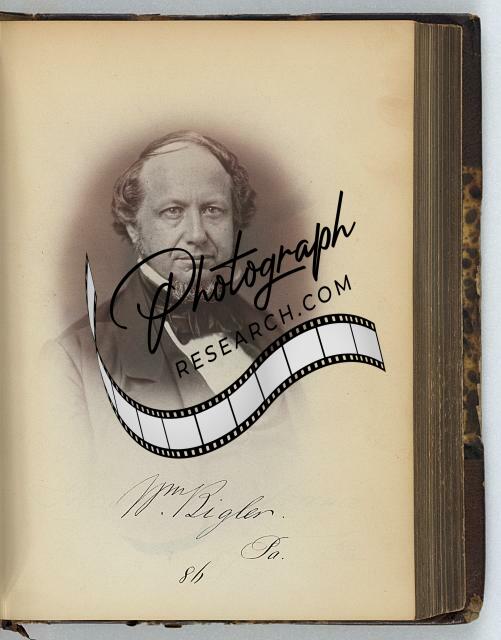 Photograph
RESEARCH.COM
Wm. Bigler.
Pa.
86